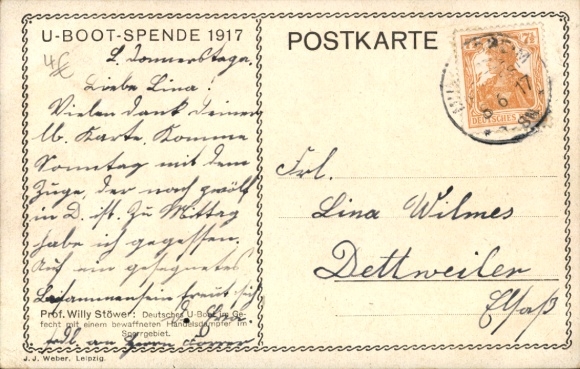 U-BOOT-SPENDE 1917
L. Donnerstag.
Liebe Lina!
Vielen Dank Deiner
lb. Karte. Komme
Sonntag mit dem
Zuge, der nach zwölf
in D. ist. Zu Mittag
habe ich gegessen.
Auf ein gesegnetes
Beisammensein freut sich
Prof. Willy Stöwer: Deutsches U-Boot im Ge-
fecht mit einem bewaffneten Handelsdampfer im
Sperrgebiet.
an Herrn
J. J. Weber, Leipzig.
POSTKARTE
7½
DEUTSCHES
6 17
Frl.
Lina Wilmes
Dettweiler
Elsaß